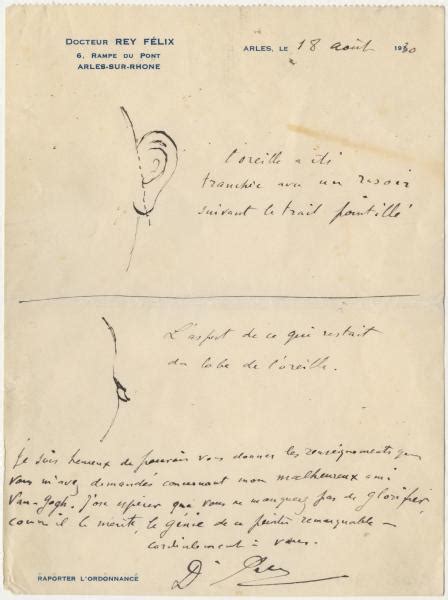 DOCTEUR REY FÉLIX
6, RAMPE DU PONT
ARLES-SUR-RHONE
ARLES, LE 18 août 1930
l'oreille a été
tranchée avec un rasoir
suivant le trait pointillé
L'aspect de ce qui restait
du lobe de l'oreille.
Je suis heureux de pouvoir vous donner les renseignements que
vous m'avez demandés concernant mon malheureux ami
Van-Gogh. J'ose espérer que vous ne manquerez pas de glorifier
comme il le mérite, le génie de ce peintre remarquable –
cordialement à vous.
Dr Rey
RAPORTER L'ORDONNANCE